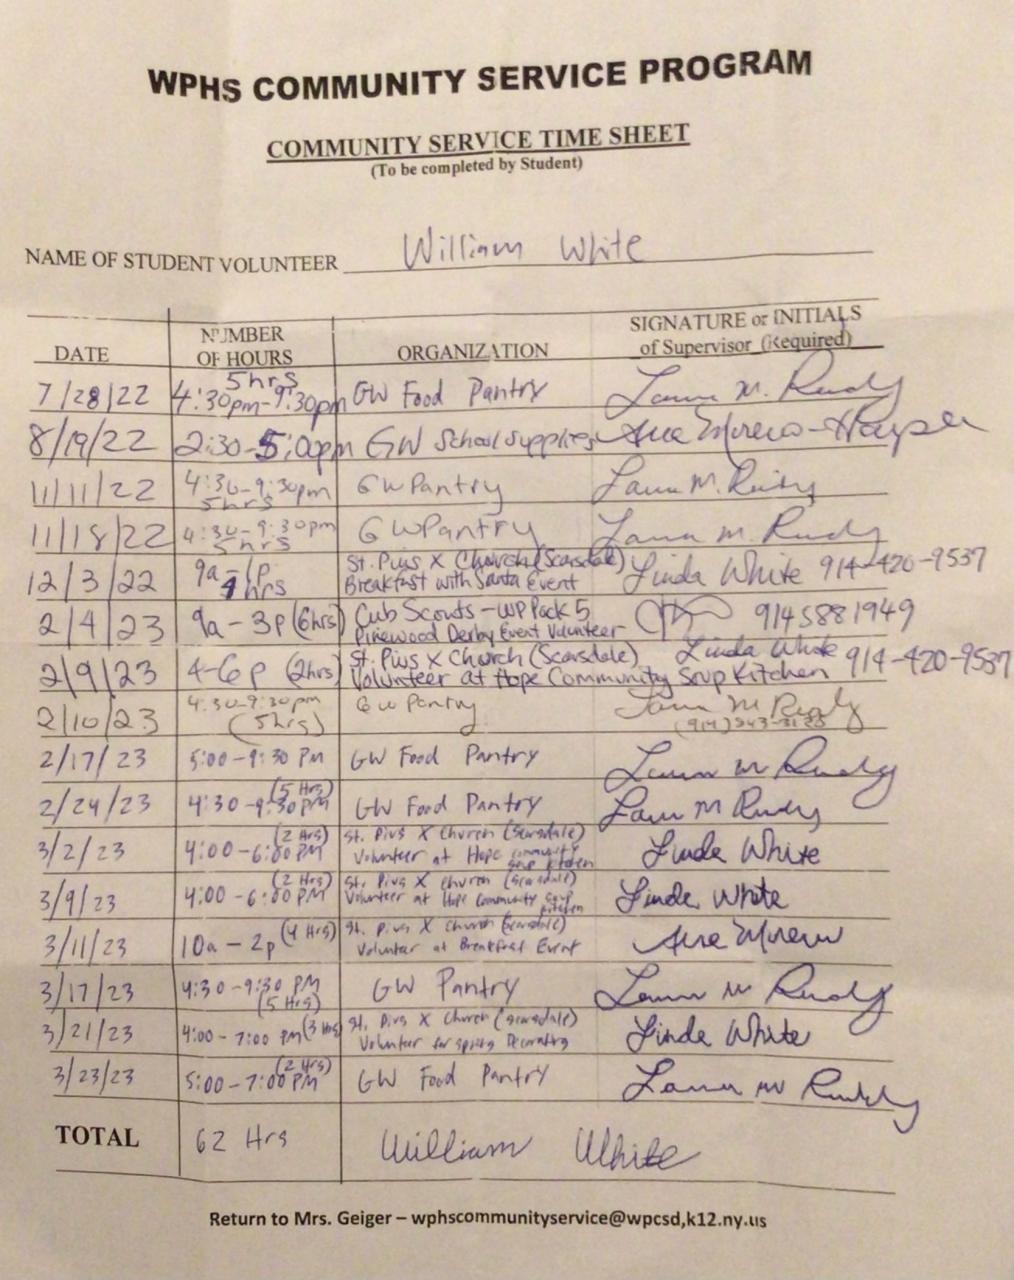 WPHS COMMUNITY SERVICE PROGRAM
COMMUNITY SERVICE TIME SHEET
(To be completed by Student)
NAME OF STUDENT VOLUNTEER William White
DATE NUMBER OF HOURS ORGANIZATION SIGNATURE or INITIALS of Supervisor (Required)
7/28/22 5hrs 4:30pm-9:30pm GW Food Pantry Laura M. Ruudy
8/19/22 2:30-5:00pm GW School supplies Ana Moreno-Harper
11/11/22 4:30-9:30pm 5hrs GW Pantry Laura M.
11/18/22 4:30-9:30pm 5hrs GW Pantry Laura M.
12/3/22 9a-1p 4hrs St. Pius X Church (Scarsdale) Breakfast with Santa Event Linda White 914-420-9537
2/4/23 9a-3p (6hrs) Cub Scouts - WP Pack 5 Pinewood Derby Event Volunteer 9145881949
2/9/23 4-6p (2hrs) St. Pius X Church (Scarsdale) Volunteer at Hope Community Soup Kitchen Linda White 914-420-9537
2/10/23 4:30-9:30pm (5hrs) GW Pantry Laura M
2/17/23 5:00-9:30 PM GW Food Pantry Laura M
2/24/23 4:30-9:30PM (5 Hrs) GW Food Pantry Laura M
3/2/23 4:00-6:00PM (2 Hrs) St. Pius X Church (Scarsdale) Volunteer at Hope community soup kitchen Linda White
3/9/23 4:00-6:00PM (2 Hrs) St. Pius X Church (Scarsdale) Volunteer at Hope Community soup kitchen Linda White
3/11/23 10a-2p (4 Hrs) St. Pius X Church (Scarsdale) Volunteer at Breakfast Event Ana Moreno
3/17/23 4:30-9:30 PM (5 Hrs) GW Pantry Laura M
3/21/23 4:00-7:00 PM (3 Hrs) St. Pius X Church (Scarsdale) Volunteer for spring Decorating Linda White
3/23/23 5:00-7:00PM (2 Hrs) GW Food Pantry Laura M
TOTAL 62 Hrs William White
Return to Mrs. Geiger – wphscommunityservice@wpcsd,k12.ny.us